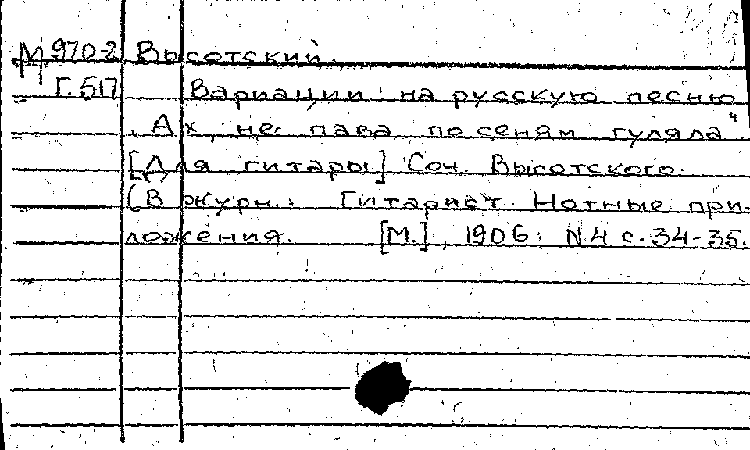 М 970-2 Высотский.
Г.517 Вариации на русскую песню
„Ах, не пава по сеням гуляла“.
[Для гитары] Соч. Высотского.
(В журн.: Гитарист. Нотные при-
ложения. [М.], 1906. N.4 с.34-35.